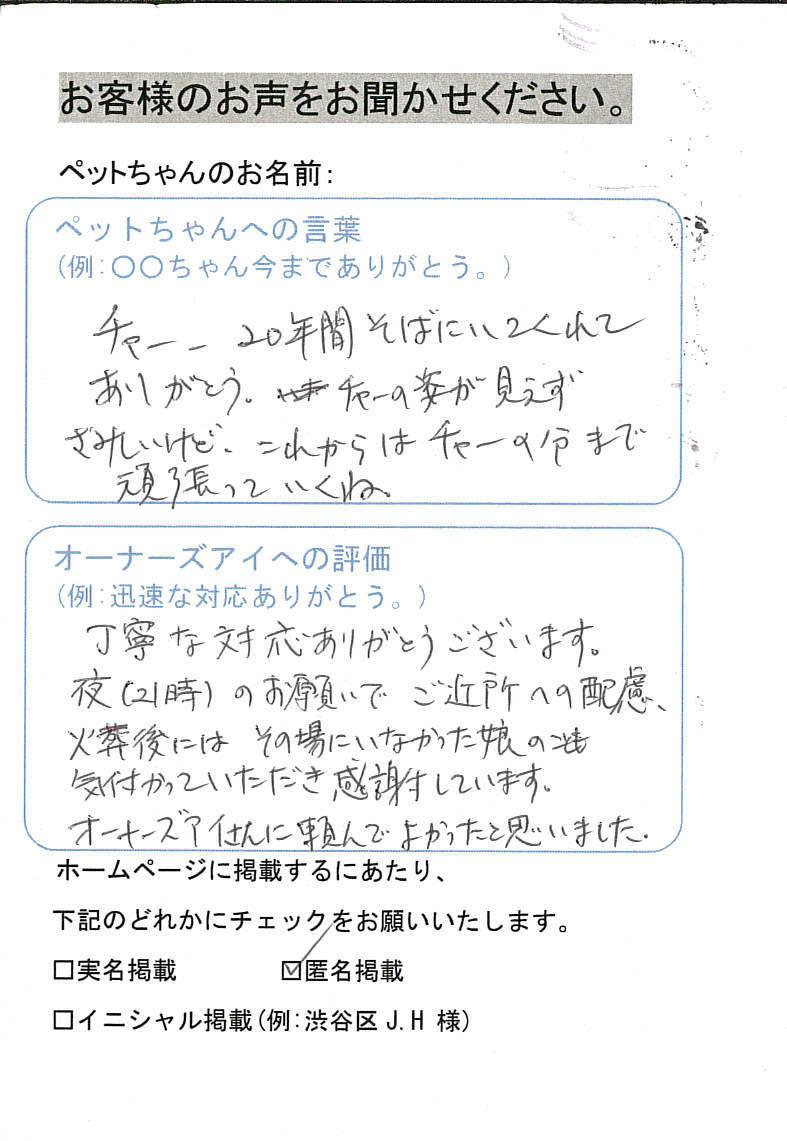 お客様のお声をお聞かせください。
ペットちゃんのお名前：
ペットちゃんへの言葉
（例：〇〇ちゃん今までありがとう。）
チャー 20年間そばにいてくれて
ありがとう。チャーの姿が見えず
さみしいけど、これからはチャーの分まで
頑張っていくね。
オーナーズアイへの評価
（例：迅速な対応ありがとう。）
丁寧な対応ありがとうございます。
夜（21時）のお願いでご近所への配慮、
火葬後にはその場にいなかった娘の
気付かっていただき感謝しています。
オーナーズアイさんに頼んでよかったと思いました。
ホームページに掲載するにあたり、
下記のどれかにチェックをお願いいたします。
□実名掲載 ☑匿名掲載
□イニシャル掲載（例：渋谷区 J.H 様）